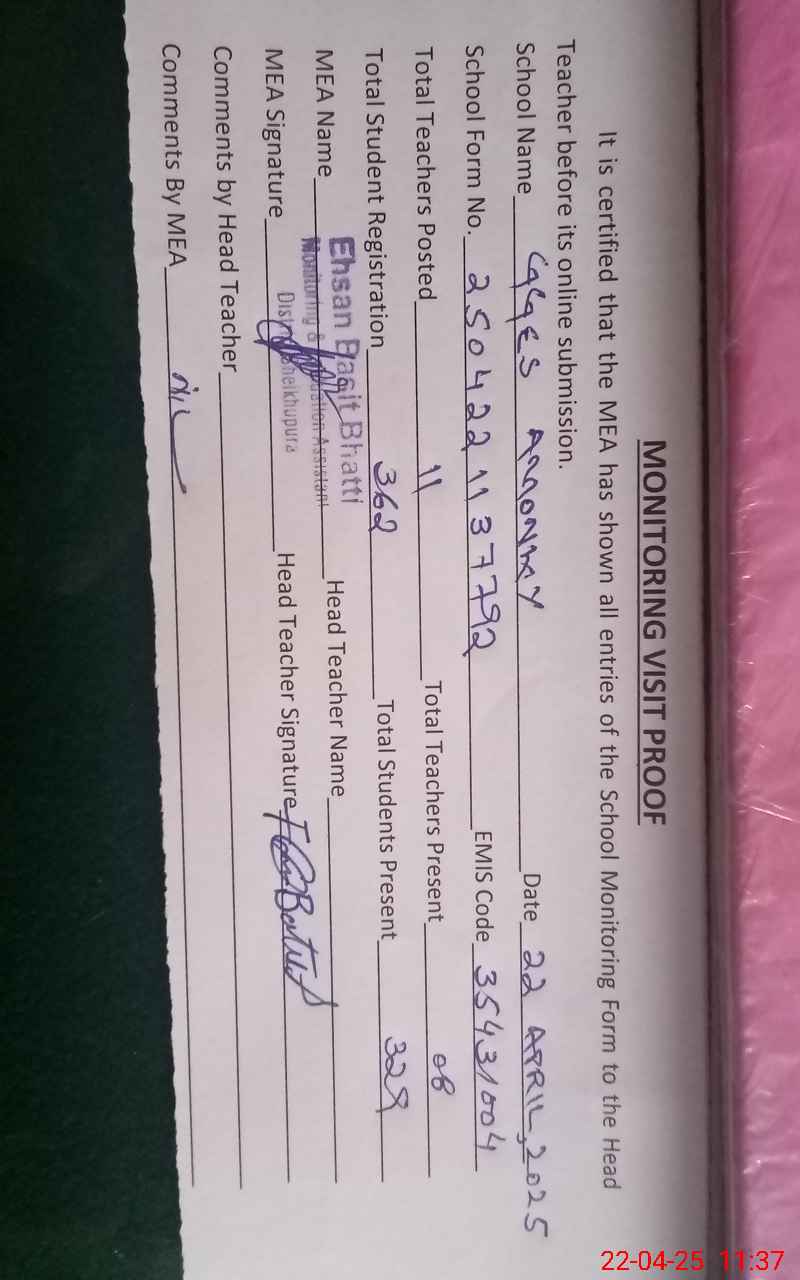 MONITORING VISIT PROOF
It is certified that the MEA has shown all entries of the School Monitoring Form to the Head
Teacher before its online submission.
School Name Date 22 APRIL, 2025
School Form No. 2504221137792 EMIS Code 35431004
Total Teachers Posted 11 Total Teachers Present 08
Total Student Registration 362 Total Students Present 329
MEA Name Ehsan Basit Bhatti Head Teacher Name
Monitoring & Assistant
MEA Signature Head Teacher Signature
Sheikhupura
Comments by Head Teacher
Comments By MEA Nil
22-04-25 11:37